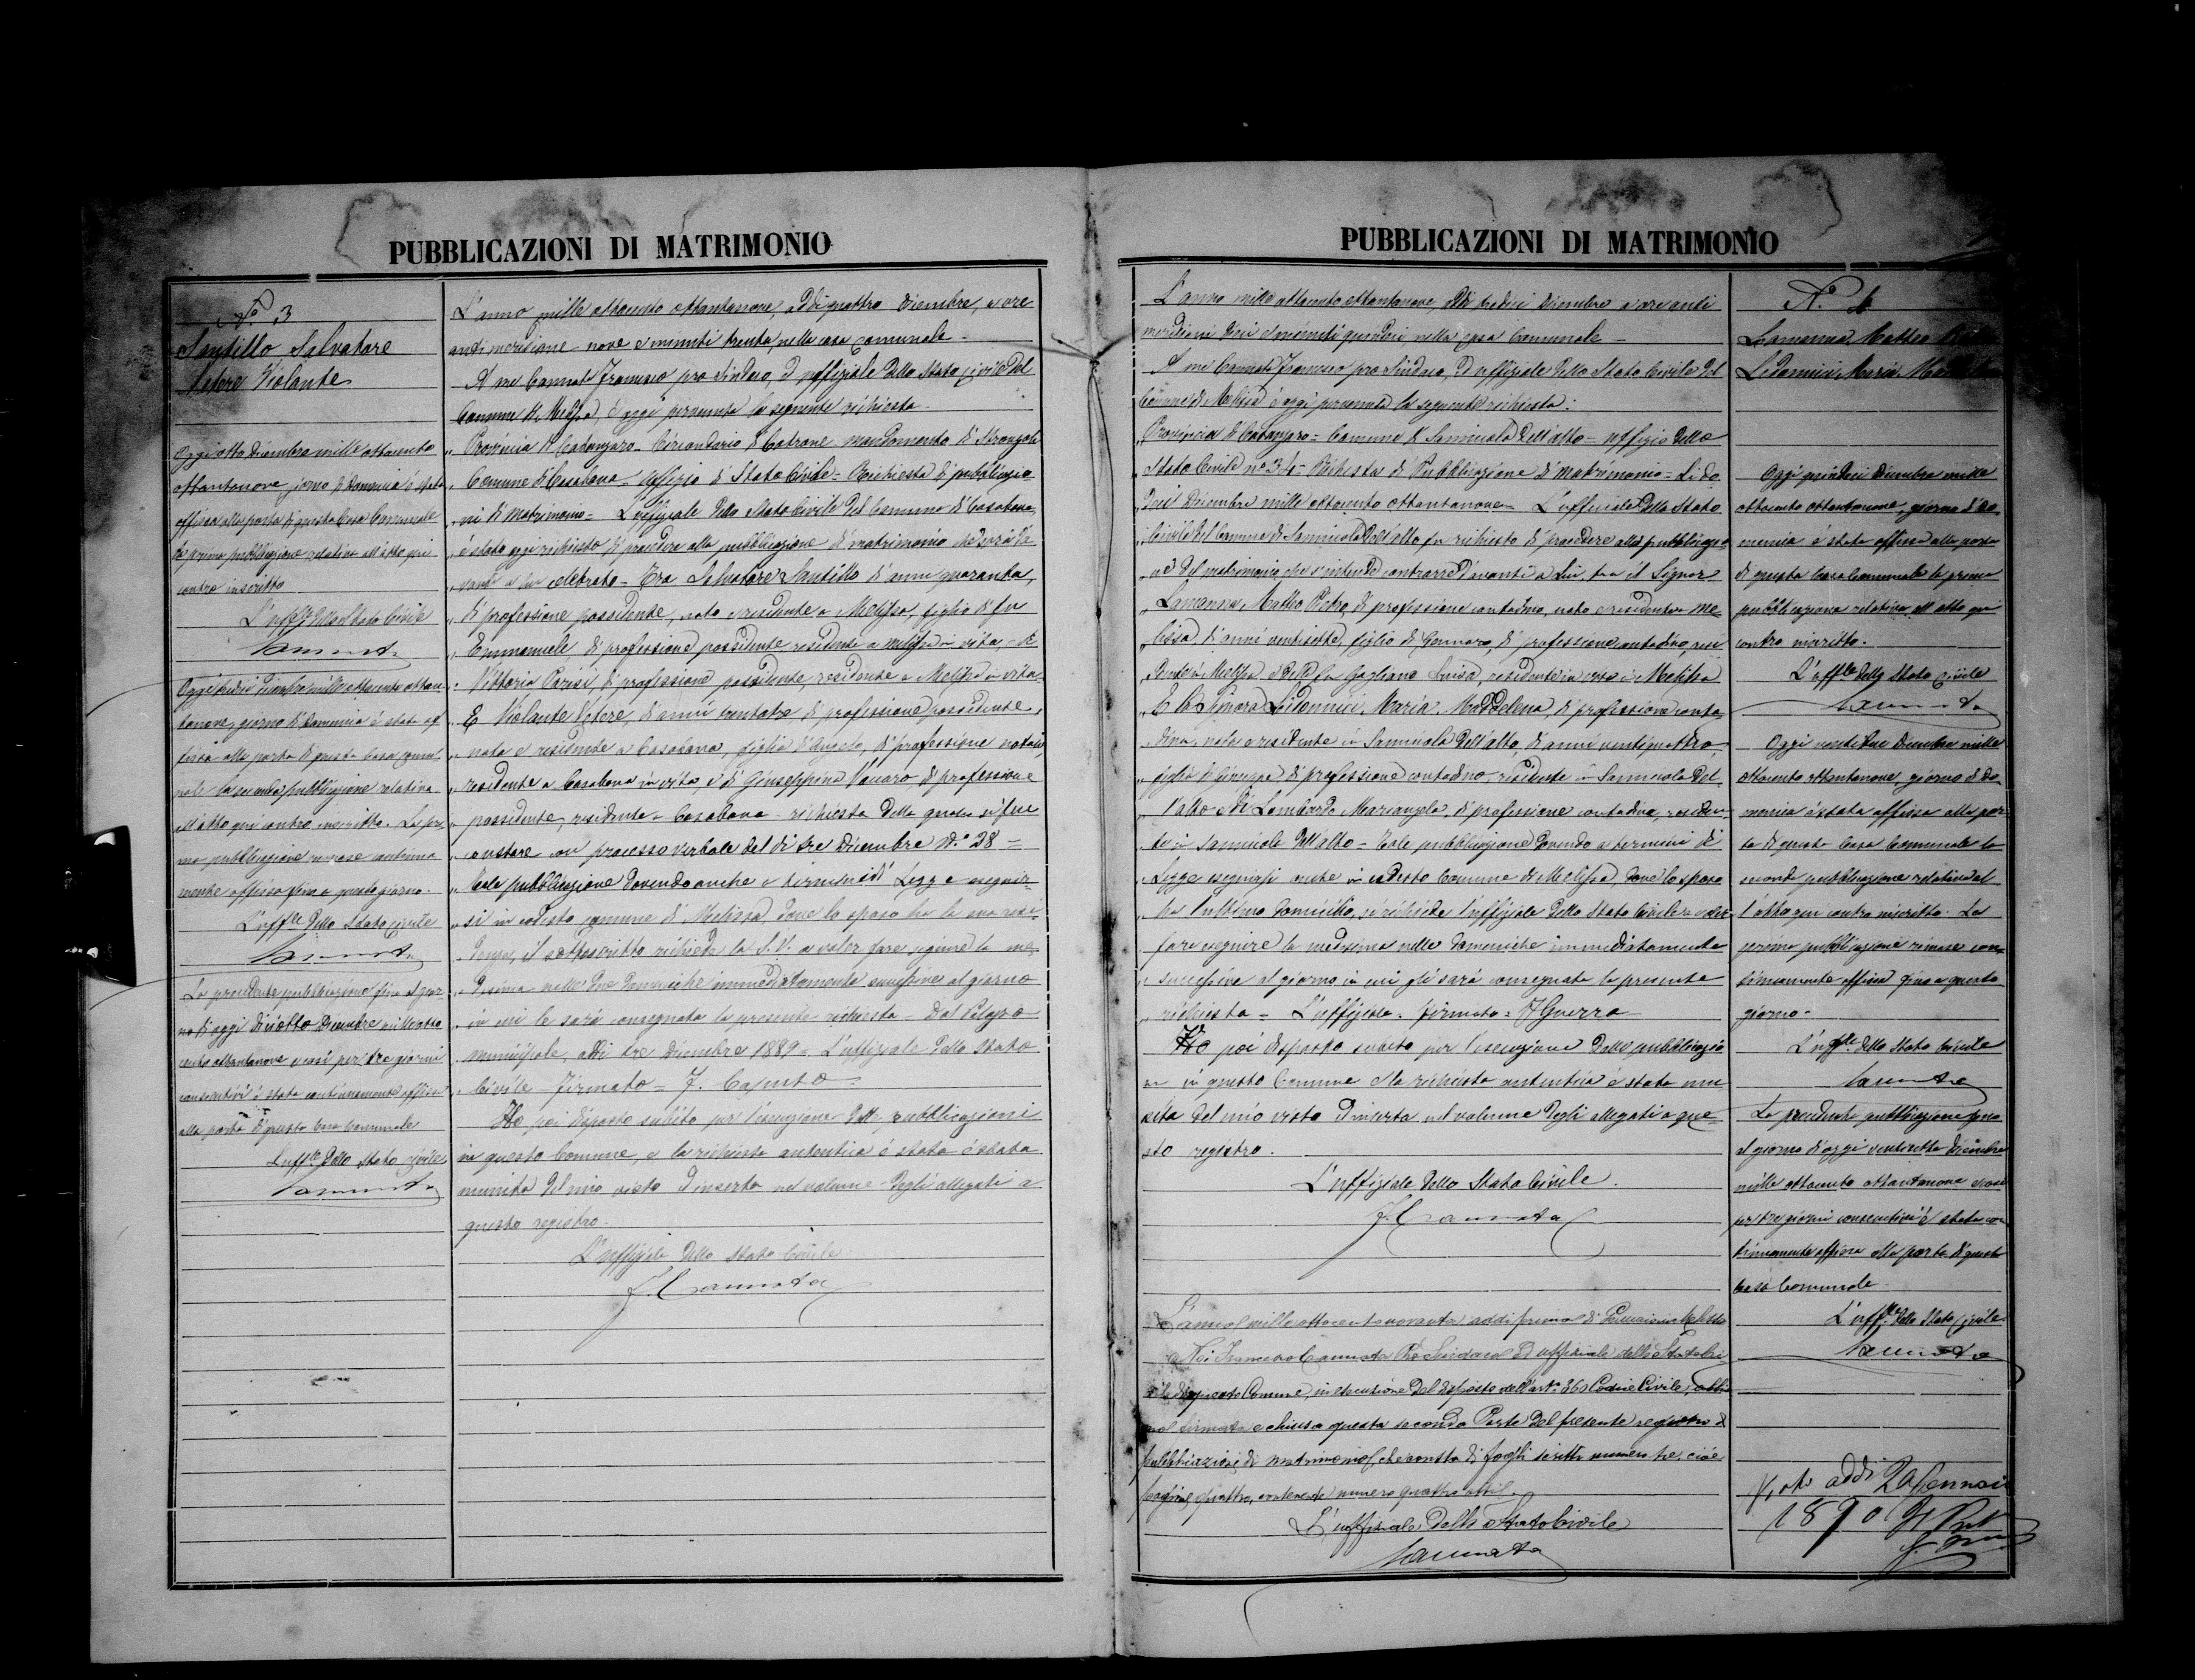 PUBBLICAZIONI DI MATRIMONIO
N.° 3
Santillo Salvatore
Vetere Violante
Oggi otto Dicembre mille ottocento
ottantanove giorno di Domenica è stata
affissa alla porta di questa Casa Comunale
la prima pubblicazione relativa all'atto qui
contro inscritto
L'uff.le dello Stato Civile
Cannata
Oggi quindici Dicembre mille ottocento ottan
tanove, giorno di Domenica è stata af
fissa alla porta di questa Casa Comu
nale la seconda pubblicazione relativa
all'atto qui contro inscritto. La pri
ma pubblicazione rimase continua
mente affissa fino a questo giorno.
L'uff.le dello Stato Civile
Cannata
La precedente pubblicazione fino al gior
no di oggi diciotto Dicembre mille otto
cento ottantanove e così per tre giorni
consecutivi è stata continuamente affissa
alla porta di questa Casa Comunale
L'uff.le dello Stato Civile
Cannata
L'anno mille ottocento ottantanove, addì quattro Dicembre, a ore
antimeridiane nove e minuti trenta, nella casa Comunale
A me Cannata Francesco pro Sindaco, ed uffiziale dello Stato Civile del
Comune di Melissa, è oggi pervenuta la seguente richiesta.
„ Provincia di Catanzaro - Circondario di Cotrone mandamento di Strongoli
„ Comune di Casabona - Uffizio di Stato Civile - Richiesta di pubblicazio
„ ni di Matrimonio = L'uffiziale dello Stato Civile del Comune di Casabona,
„ è stato oggi richiesto di procedere alla pubblicazione di matrimonio da
„ vanti a lui celebrato - Tra Salvatore Santillo d'anni quaranta,
„ di professione possidente, nato e residente a Melissa, figlio di fu
„ Emmanuele di professione possidente residente a Melissa in vita, e di
„ Vittoria Parisi, di professione possidente, residente a Melissa in vita
„ E Violante Vetere, di anni trentatre di professione possidente,
„ nata e residente a Casabona, figlia d'Angelo, di professione notaio,
„ residente a Casabona in vita, e di Giuseppina Vaccaro, di professione
„ possidente, residente a Casabona - richiesta della quale si fece
„ constare con processo verbale del dì tre Dicembre N.° 28 =
„ Tale pubblicazione dovendo anche a termini di Legge eseguir
„ si in codesto Comune di Melissa, dove lo sposo ha la sua resi
„ denza, il sottoscritto richiede la S.V. a voler fare eseguire la me
„ desima nelle due Domeniche immediatamente successive al giorno
„ in cui le sarà consegnata la presente richiesta - Dal Palazzo
municipale, addì tre Dicembre 1889 = L'uffiziale dello Stato
„ Civile - Firmato = F. Caputo =
Ho poi disposto subito per l'esecuzione delle pubblicazioni
in questo Comune, e la richiesta autentica è stata è stata
munita del mio visto ed inserta nel volume degli allegati a
questo registro.
L'uffiziale dello Stato Civile
F. Cannata
PUBBLICAZIONI DI MATRIMONIO
L'anno mille ottocento ottantanove, addì tredici Dicembre a ore anti
meridiane dieci e minuti quindici, nella casa Comunale
A me Cannata Francesco pro Sindaco, ed uffiziale dello Stato Civile del
Comune di Melissa è oggi pervenuta la seguente richiesta:
„ Provincia di Catanzaro = Comune di Sannicola dell'alto = uffizio dello
„ Stato Civile n.° 34 = Richiesta di Pubblicazione di Matrimonio = Li do
dici Dicembre mille ottocento ottantanove = L'uffiziale dello Stato
„ Civile del Comune di Sannicola dell'alto fu richiesto di procedere alla pubblicazio
„ ne del matrimonio che s'intende contrarre davanti a lui, tra il Signor
„ Lamanna Matteo Pietro, di professione contadino, nato e residente a Me
lissa, di anni ventisette, figlio di Gennaro, di professione contadino, resi
dente a Melissa e della fu Gagliano Luisa, residente in vita a Melissa
„ E la Signora Lidonnici Maria Maddalena, di professione conta
„ dina, nata e residente in Sannicola dell'alto, di anni ventiquattro,
„ figlia di Giuseppe di professione contadino, residente in Sannicola del
„ l'alto e di Lombardo Mariangela, di professione contadina, residen
„ te in Sannicola dell'alto = Tale pubblicazione dovendo a termini di
„ Legge eseguirsi anche in codesto Comune di Melissa, dove lo sposo
„ ha l'ultimo domicilio, si richiede l'uffiziale dello Stato Civile a voler
fare eseguire la medesima nelle Domeniche immediatamente
„ successive al giorno in cui gli sarà consegnata la presente
„ richiesta = L'uffiziale = firmato = F. Guerra
Ho poi disposto subito per l'esecuzione delle pubblicazio
ni in questo Comune e la richiesta autentica è stata mu
nita del mio visto ed inserta nel volume degli allegati a que
sto registro.
L'uffiziale dello Stato Civile.
F. Cannata
L'anno mille ottocentonovanta addì primo di Gennaio in Melissa
Noi Francesco Cannata Pro Sindaco ed uffiziale dello Stato Ci
vile di questo Comune, in esecuzione del disposto dell'art.° 360 Codice Civile, abbia
mo firmato e chiusa questa seconda Parte del presente registro di
pubblicazioni di matrimonio, che consta di fogli scritti numero tre, cioè
pagine quattro, contenente numero quattro atti.
L'uffiziale dello Stato Civile
Cannata
N.° 4
Lamanna Matteo
Lidonnici Maria
Oggi quindici Dicembre mille
ottocento ottantanove, giorno di Do
menica è stata affissa alla porta
di questa Casa Comunale la prima
pubblicazione relativa all'atto qui
contro inscritto.
L'uff.le dello Stato Civile
Cannata
Oggi ventidue Dicembre mille
ottocento ottantanove, giorno di Do
menica è stata affissa alla por
ta di questa Casa Comunale la
seconda pubblicazione relativa al
l'atto qui contro inscritto. La
prima pubblicazione rimase con
tinuamente affissa fino a questo
giorno.
L'uff.le dello Stato Civile
Cannata
La precedente pubblicazione fino
al giorno d'oggi Dicembre
mille ottocento ottantanove e così
per tre giorni consecutivi è stata con
tinuamente affissa alla porta di questa
Casa Comunale
L'uff.le dello Stato Civile
Cannata
Visto addì Gennaio
1890